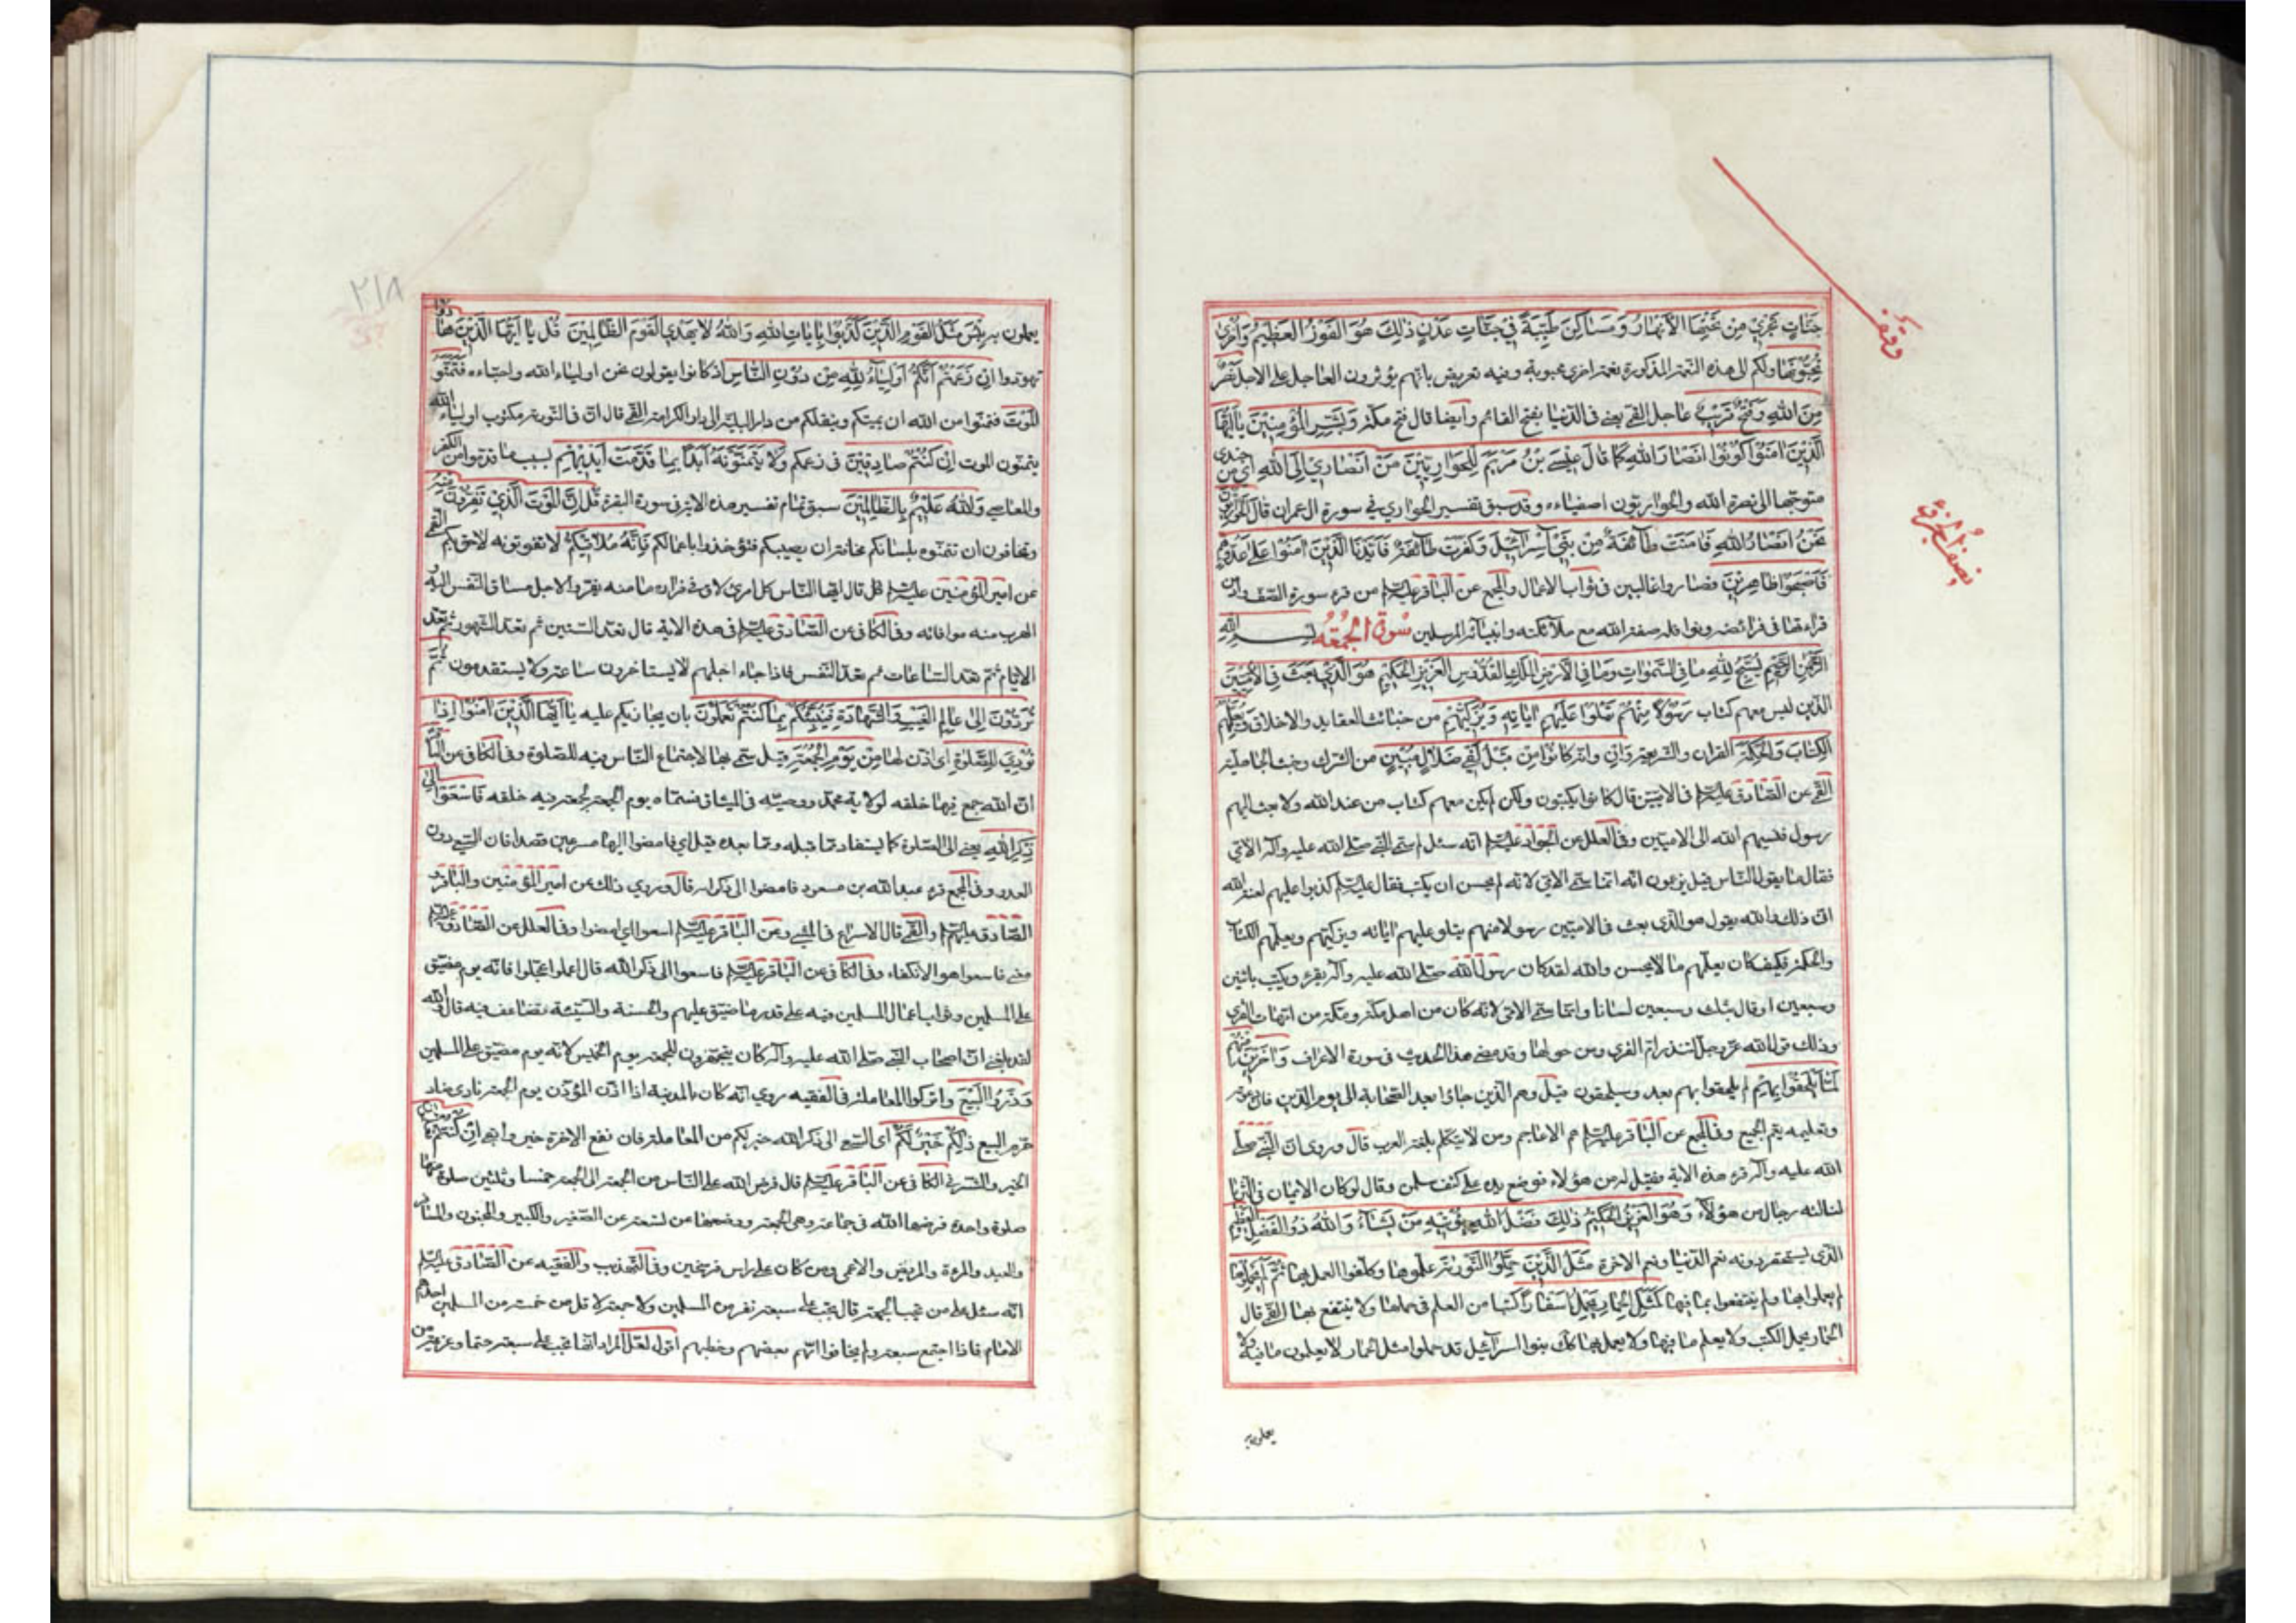 وقف
نصف الجزء
جَنَّاتٍ تَجْرِي مِنْ تَحْتِهَا الْأَنْهَارُ وَمَسَاكِنَ طَيِّبَةً فِي جَنَّاتِ عَدْنٍ ذَٰلِكَ هُوَ الْفَوْزُ الْعَظِيمُ وَأُخْرَىٰ
تُحِبُّونَهَا ولكم الى هذه النعمة المذكورة نعمة اخرى محبوبة وفيه تعريض بانهم يؤثرون العاجل على الاجل نَصْرٌ
مِنَ اللهِ وَفَتْحٌ قَرِيبٌ عاجل القمي يعنى فى الدنيا بفتح القائم وايضا قال فتح مكة وَبَشِّرِ الْمُؤْمِنِينَ يَا أَيُّهَا
الَّذِينَ آمَنُوا كُونُوا أَنْصَارَ اللهِ كَمَا قَالَ عِيسَى بْنُ مَرْيَمَ لِلْحَوَارِيِّينَ مَنْ أَنْصَارِي إِلَى اللهِ اى من جندى
متوجها الى نصرة الله والحواريون اصفياءه وقد سبق تفسير الحوارى فى سورة ال عمران قَالَ الْحَوَارِيُّونَ
نَحْنُ أَنْصَارُ اللهِ فَآمَنَتْ طَائِفَةٌ مِنْ بَنِي إِسْرَائِيلَ وَكَفَرَتْ طَائِفَةٌ فَأَيَّدْنَا الَّذِينَ آمَنُوا عَلَىٰ عَدُوِّهِمْ
فَأَصْبَحُوا ظَاهِرِينَ فصاروا غالبين فى ثواب الاعمال والمجمع عن الباقر عليه السلم من قرء سورة الصف وادمن
قراءتها فى فرائضه ونوافله صفه الله مع ملائكته وانبيائه المرسلين سورة الجمعة بسم الله
الرَّحْمٰنِ الرَّحِيمِ يُسَبِّحُ لِلهِ مَا فِي السَّمٰوَاتِ وَمَا فِي الْأَرْضِ الْمَلِكِ الْقُدُّوسِ الْعَزِيزِ الْحَكِيمِ هُوَ الَّذِي بَعَثَ فِي الْأُمِّيِّينَ
الذين ليس معهم كتاب رَسُولًا مِنْهُمْ يَتْلُوا عَلَيْهِمْ آيَاتِهِ وَيُزَكِّيهِمْ من خبائث العقايد والاخلاق وَيُعَلِّمُهُمُ
الْكِتَابَ وَالْحِكْمَةَ القران والشريعة وَإِنْ وانه كَانُوا مِنْ قَبْلُ لَفِي ضَلَالٍ مُبِينٍ من الشرك وخبث الجاهلية
القمي عن الصادق عليه السلم فى الاميين قال كانوا يكتبون ولكن لم يكن معهم كتاب من عند الله ولا بعث اليهم
رسول فنسبهم الله الى الاميين وفى العلل عن الجواد عليه السلم انه سئل لم سمى النبى صلى الله عليه وآله الامى
فقال ما يقول الناس قيل يزعمون انه انما سمى الامى لانه لم يحسن ان يكتب فقال عليه السلم كذبوا عليهم لعنة الله
انى ذلك والله يقول هو الذى بعث فى الاميين رسولا منهم يتلو عليهم اياته ويزكيهم ويعلمهم الكتاب
والحكمة فكيف كان يعلمهم ما لا يحسن والله لقد كان رسول الله صلى الله عليه وآله يقرء ويكتب باثنين
وسبعين او قال بثلث وسبعين لسانا وانما سمى الامى لانه كان من اهل مكة ومكة من امهات القرى
وذلك قول الله عز وجل لتنذر ام القرى ومن حولها وقد مضى هذا الحديث فى سورة الاعراف وَآخَرِينَ مِنْهُمْ
لَمَّا يَلْحَقُوا بِهِمْ لم يلحقوا بهم بعد وسيلحقون قيل وهم الذين جاؤا بعد الصحابة الى يوم الدين فان دعوته
وتعليمه يعم الجميع وفى المجمع عن الباقر عليه السلم هم الاعاجم ومن لا يتكلم بلغة العرب قال وروى ان النبى صلى
الله عليه وآله قرء هذه الاية فقيل له من هؤلاء فوضع يده على كتف سلمن وقال لو كان الايمان فى الثريا
لنالته رجال من هؤلاء وَهُوَ الْعَزِيزُ الْحَكِيمُ ذَٰلِكَ فَضْلُ اللهِ يُؤْتِيهِ مَنْ يَشَاءُ وَاللهُ ذُو الْفَضْلِ الْعَظِيمِ
الذى يستحقر دونه نعم الدنيا ونعم الاخرة مَثَلُ الَّذِينَ حُمِّلُوا التَّوْرٰيةَ علموها وكلفوا العمل بها ثُمَّ لَمْ يَحْمِلُوهَا
لم يعملوا بها ولم ينتفعوا بما فيها كَمَثَلِ الْحِمَارِ يَحْمِلُ أَسْفَارًا كتبا من العلم فى حملها ولا ينتفع بها القمي قال
الحمار يحمل الكتب ولا يعلم ما فيها ولا يعمل بها كك بنوا اسرائيل قد حملوا مثل الحمار لا يعلمون ما فيه ولا
يعملون به
٢١٨
يعملون به بِئْسَ مَثَلُ الْقَوْمِ الَّذِينَ كَذَّبُوا بِآيَاتِ اللهِ وَاللهُ لَا يَهْدِي الْقَوْمَ الظَّالِمِينَ قُلْ يَا أَيُّهَا الَّذِينَ هَادُوا
تهودوا إِنْ زَعَمْتُمْ أَنَّكُمْ أَوْلِيَاءُ لِلهِ مِنْ دُونِ النَّاسِ اذ كانوا يقولون نحن اولياء الله واحباءه فَتَمَنَّوُا
الْمَوْتَ فتمنوا من الله ان يميتكم وينقلكم من دار البلية الى دار الكرامة القمي قال ان فى التورية مكتوب اولياء الله
يتمنون الموت إِنْ كُنْتُمْ صَادِقِينَ فى زعمكم وَلَا يَتَمَنَّوْنَهُ أَبَدًا بِمَا قَدَّمَتْ أَيْدِيهِمْ بسبب ما قدموا من الكفر
والمعاصى وَاللهُ عَلِيمٌ بِالظَّالِمِينَ سبق تمام تفسير هذه الاية فى سورة البقرة قُلْ إِنَّ الْمَوْتَ الَّذِي تَفِرُّونَ مِنْهُ
وتخافون ان تتمنوه بلسانكم مخافة ان يصيبكم فتؤخذوا باعمالكم فَإِنَّهُ مُلَاقِيكُمْ لا تفوتونه لاحق بكم القمي
عن امير المؤمنين عليه السلم قال ايها الناس كل امرئ لاق فى فراره ما منه يفر والاجل مساق النفس اليه و
الهرب منه موافاته وفى الكافى عن الصادق عليه السلم فى هذه الاية قال تعد السنين ثم تعد الشهور ثم تعد
الايام ثم تعد الساعات ثم تعد النفس فاذا جاء اجلهم لا يستاخرون ساعة ولا يستقدمون ثُمَّ
تُرَدُّونَ إِلَىٰ عَالِمِ الْغَيْبِ وَالشَّهَادَةِ فَيُنَبِّئُكُمْ بِمَا كُنْتُمْ تَعْمَلُونَ بان يجازيكم عليه يَا أَيُّهَا الَّذِينَ آمَنُوا إِذَا
نُودِيَ لِلصَّلٰوةِ اى اذن لها مِنْ يَوْمِ الْجُمُعَةِ قيل سمى بها لاجتماع الناس فيه للصلوة وفى الكافى عن الباقر
ان الله جمع فيها خلقه لولاية محمد ووصيه فى الميثاق فسماه يوم الجمعة لجمعه فيه خلقه فَاسْعَوْا إِلَىٰ
ذِكْرِ اللهِ يعنى الى الصلوة كما يستفاد مما قبله ومما بعده قيل اى فامضوا اليها مسرعين قصدا فان السعى دون
العدو وفى المجمع قرء عبد الله بن مسعود فامضوا الى ذكر الله قال وروى ذلك عن امير المؤمنين والباقر و
الصادق عليهم السلم والقمي قال الاسراع فى المشى وعن الباقر عليه السلم اسعوا اى امضوا وفى العلل عن الصادق عليه السلم
معنى فاسعوا هو الانكفاء وفى الكافى عن الباقر عليه السلم فاسعوا الى ذكر الله قال اعملوا وعجلوا فانه يوم مضيق
على المسلمين وثواب اعمال المسلمين فيه على قدر ما ضيق عليهم والحسنة والسيئة تضاعف فيه قال والله
لقد بلغنى ان اصحاب النبى صلى الله عليه وآله كان يتجهزون للجمعة يوم الخميس لانه يوم مضيق على المسلمين
وَذَرُوا الْبَيْعَ واتركوا المعاملة فى الفقيه روى انه كان بالمدينة اذا اذن المؤذن يوم الجمعة نادى مناد
حرم البيع ذَٰلِكُمْ خَيْرٌ لَكُمْ اى السعى الى ذكر الله خير لكم من المعاملة فان نفع الاخرة خير وابقى إِنْ كُنْتُمْ تَعْلَمُونَ
الخير والشر فى الكافى عن الباقر عليه السلم قال فرض الله على الناس من الجمعة الى الجمعة خمسا وثلثين صلوة منها
صلوة واحدة فرضها الله فى جماعة وهى الجمعة ووضعها عن تسعة عن الصغير والكبير والمجنون والمسافر
والعبد والمرءة والمريض والاعمى ومن كان على راس فرسخين وفى التهذيب والفقيه عن الصادق عليه السلم
انه سئل على من تجب الجمعة قال تجب على سبعة نفر من المسلمين ولا جمعة لاقل من خمسة من المسلمين احدهم
الامام فاذا اجتمع سبعة ولم يخافوا امهم بعضهم وخطبهم اقول لعل المراد انها تجب على سبعة حتما وعزيمة من